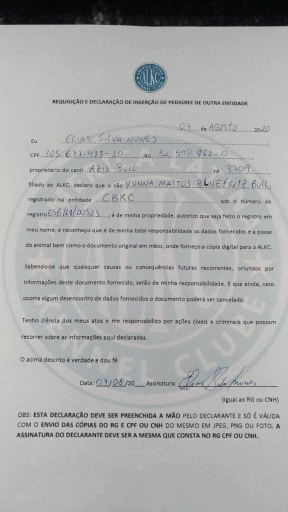 ALKC
REQUISIÇÃO E DECLARAÇÃO DE INSERÇÃO DE PEDIGREE DE OUTRA ENTIDADE
07 de AGOSTO 2020
Eu ELIAS SILVA NUNES
CPF RG
proprietário do canil Aziz Bull nº 3709
filiado ao ALKC, declaro que o cão YUNNA MATTOS BLUEFRITZ BULL
registrado na entidade CBKC sob o número de
registro é de minha propriedade, autorizo que seja feito o registro em
meu nome, e reconheço que é de minha total responsabilidade os dados fornecidos e a posse
do animal bem como o documento original em mãos, onde forneço a cópia digital para o ALKC.
Sabendo-se que quaisquer causas ou consequências futuras recorrentes, oriundos por
informações deste documento fornecido, serão de minha responsabilidade. E que ainda, caso
ocorra algum desencontro de dados fornecidos o documento poderá ser cancelado.
Tenho ciência dos meus atos e me responsabilizo por ações cíveis e criminais que possam
recorrer sobre as informações aqui declaradas.
O acima descrito é verdade e dou fé
Data: 07/08/20 Assinatura:
(Igual ao RG ou CNH)
OBS: ESTA DECLARAÇÃO DEVE SER PREENCHIDA A MÃO PELO DECLARANTE E SÓ É VÁLIDA
COM O ENVIO DAS CÓPIAS DO RG E CPF OU CNH DO MESMO EM JPEG, PNG OU FOTO. A
ASSINATURA DO DECLARANTE DEVE SER A MESMA QUE CONSTA NO RG CPF OU CNH.